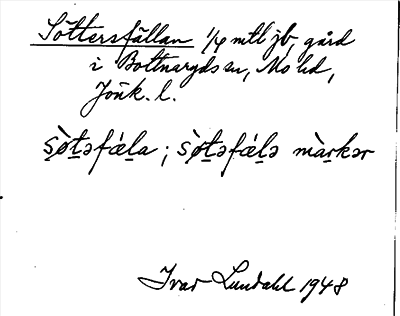 Söttersfällan 1/4 mtl jb, gård
i Bottnaryds sn, Mo hd,
Jönk. l.
s̀ø̱t̲əfǽl̲a ; s̀ø̱t̲əfǽl̲ə màr̲kər
Ivar Lundahl 1948